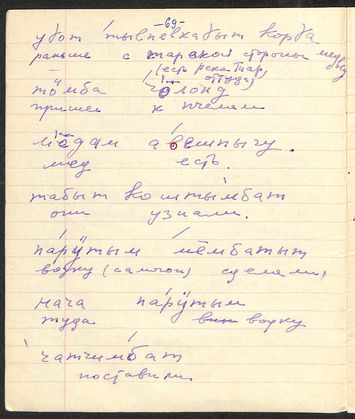 -69-
убот тывпевкадыт корва
раньше с тарской стороны медведь
(есть река Тар, оттуда)
то̄мба чо̄лонд
пришел к пчелам
мӧдам авешпычу.
мед есть.
табыт коштымбат
они узнали.
парӱтым мембатыт
водку (самогон) сделали,
нача парӱтым
туда водку
чатчимбат
поставили.